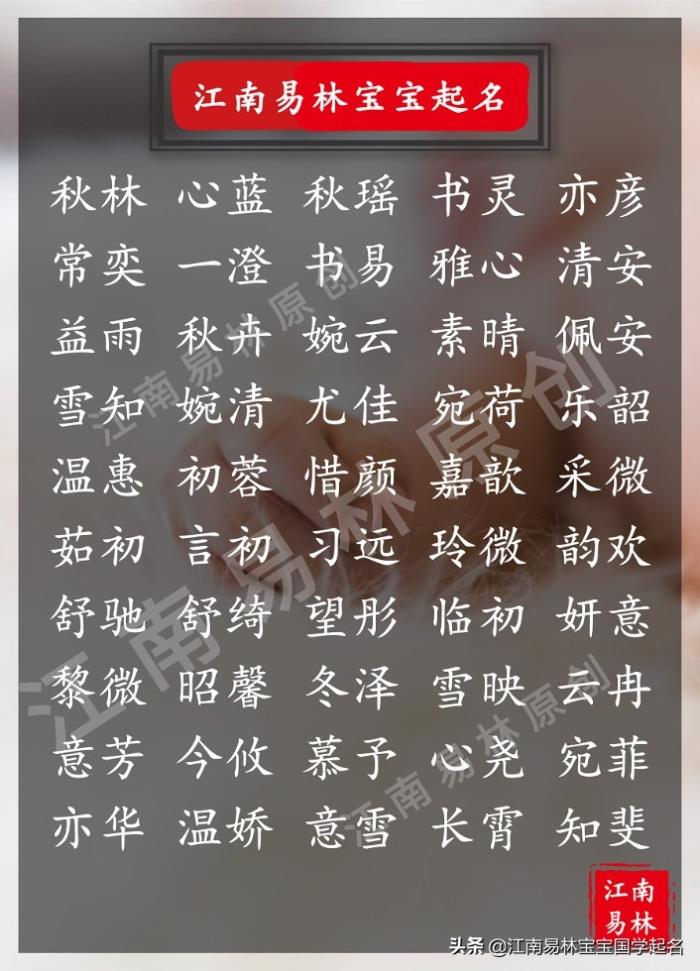 江南易林宝宝起名
秋林 心蓝 秋瑶 书灵 亦彦
常奕 一澄 书易 雅心 清安
益雨 秋卉 婉云 素晴 佩安
雪知 婉清 尤佳 宛荷 乐韶
温惠 初蓉 惜颜 嘉歆 采微
茹初 言初 习远 玲微 韵欢
舒驰 舒绮 望彤 临初 妍意
黎微 昭馨 冬泽 雪映 云冉
意芳 今攸 慕予 心尧 宛菲
亦华 温娇 意雪 长霄 知斐
江南易林原创
江南易林原创
江南易林原创
江南
易林
头条 @江南易林宝宝国学起名